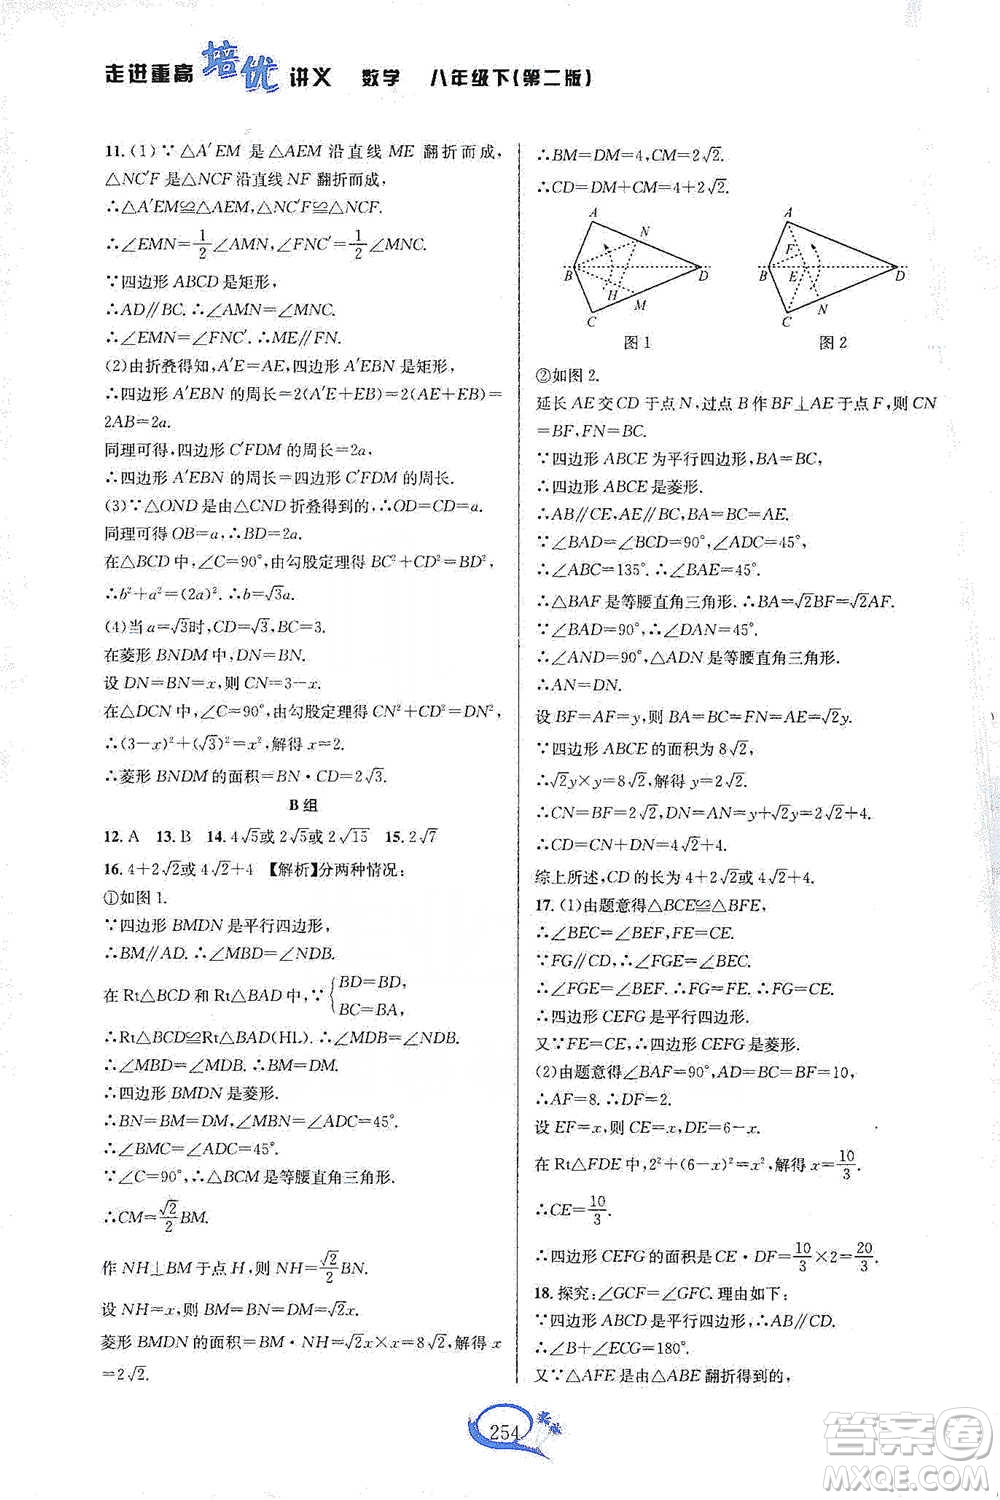 走进重高 培优 讲义 数学 八年级下(第二版)
11. (1)∵△A′EM 是△AEM 沿直线 ME 翻折而成,
△NC′F是△NCF沿直线 NF 翻折而成,
∴△A′EM≌△AEM,△NC′F≌△NCF.
∴∠EMN=1/2∠AMN,∠FNC′=1/2∠MNC.
∵四边形 ABCD 是矩形,
∴AD∥BC. ∴∠AMN=∠MNC.
∴∠EMN=∠FNC′. ∴ME∥FN.
(2)由折叠得知,A′E=AE,四边形 A′EBN 是矩形,
∴四边形 A′EBN 的周长=2(A′E+EB)=2(AE+EB)=
2AB=2a.
同理可得,四边形 C′FDM 的周长=2a,
∴四边形 A′EBN 的周长=四边形 C′FDM 的周长.
(3)∵△OND 是由△CND 折叠得到的,∴OD=CD=a.
同理可得 OB=a,∴BD=2a.
在△BCD 中,∠C=90°,由勾股定理得 BC²+CD²=BD²
∴b²+a²=(2a)². ∴b=√3a.
(4)当 a=√3时,CD=√3,BC=3.
在菱形 BNDM 中,DN=BN.
设 DN=BN=x,则 CN=3-x.
在△DCN 中,∠C=90°,由勾股定理得 CN²+CD²=DN²,
∴(3-x)²+(√3)²=x²,解得 x=2.
∴菱形 BNDM 的面积=BN·CD=2√3.
B 组
12. A 13. B 14. 4√5或 2√5或 2√15 15. 2√7
16. 4+2√2或 4√2+4 【解析】分两种情况:
①如图 1.
∵四边形 BMDN 是平行四边形,
∴BM∥AD. ∴∠MBD=∠NDB.
在 Rt△BCD 和 Rt△BAD 中,∵{BD=BD,
BC=BA,
∴Rt△BCD≌Rt△BAD(HL). ∴∠MDB=∠NDB.
∴∠MBD=∠MDB. ∴BM=DM.
∴四边形 BMDN 是菱形.
∴BN=BM=DM,∠MDN=∠ADC=45°.
∴∠BMC=∠ADC=45°.
∵∠C=90°,∴△BCM 是等腰直角三角形.
∴CM=√2/2BM.
作 NH⊥BM 于点 H,则 NH=√2/2BN.
设 NH=x,则 BM=BN=DM=√2x.
菱形 BMDN 的面积=BM·NH=√2x×x=8√2,解得 x
=2√2.
∴BM=DM=4,CM=2√2.
∴CD=DM+CM=4+2√2.
A N B D H M C
图 1
A F B E D N C
图 2
②如图 2.
延长 AE 交 CD 于点 N,过点 B 作 BF⊥AE 于点 F,则 CN
=BF,FN=BC.
∵四边形 ABCE 为平行四边形,BA=BC,
∴四边形 ABCE 是菱形.
∴AB∥CE,AE∥BC,BA=BC=AE.
∵∠BAD=∠BCD=90°,∠ADC=45°,
∴∠ABC=135°. ∴∠BAE=45°.
∴△BAF是等腰直角三角形. ∴BA=√2BF=√2AF.
∵∠BAD=90°,∴∠DAN=45°.
∴∠AND=90°,△ADN 是等腰直角三角形.
∴AN=DN.
设 BF=AF=y,则 BA=BC=FN=AE=√2y.
∵四边形 ABCE 的面积为 8√2,
∴√2y×y=8√2,解得 y=2√2.
∴CN=BF=2√2,DN=AN=y+√2y=2√2+4.
∴CD=CN+DN=4√2+4.
综上所述,CD 的长为 4+2√2或 4√2+4.
17. (1)由题意得△BCE≌△BFE,
∴∠BEC=∠BEF,FE=CE.
∵FG∥CD,∴∠FGE=∠CEB.
∴∠FGE=∠FEG. ∴FG=FE. ∴FG=EC.
∴四边形 CEFG 是平行四边形.
又∵FE=CE,∴四边形 CEFG 是菱形.
(2)由题意得∠BAF=90°,AD=BC=BF=10,
∴AF=8. ∴DF=2.
设 EF=x,则 CE=x,DE=6-x.
在 Rt△FDE 中,2²+(6-x)²=x²,解得 x=10/3.
∴CE=10/3.
∴四边形 CEFG 的面积是 CE·DF=10/3×2=20/3.
18. 探究:∠GCF=∠GFC. 理由如下:
∵四边形 ABCD 是平行四边形,
∴∠B+∠ECG=180°.
又∵△AFE 是由△ABE 翻折得到的,
254
答案圈
MXQE.COM